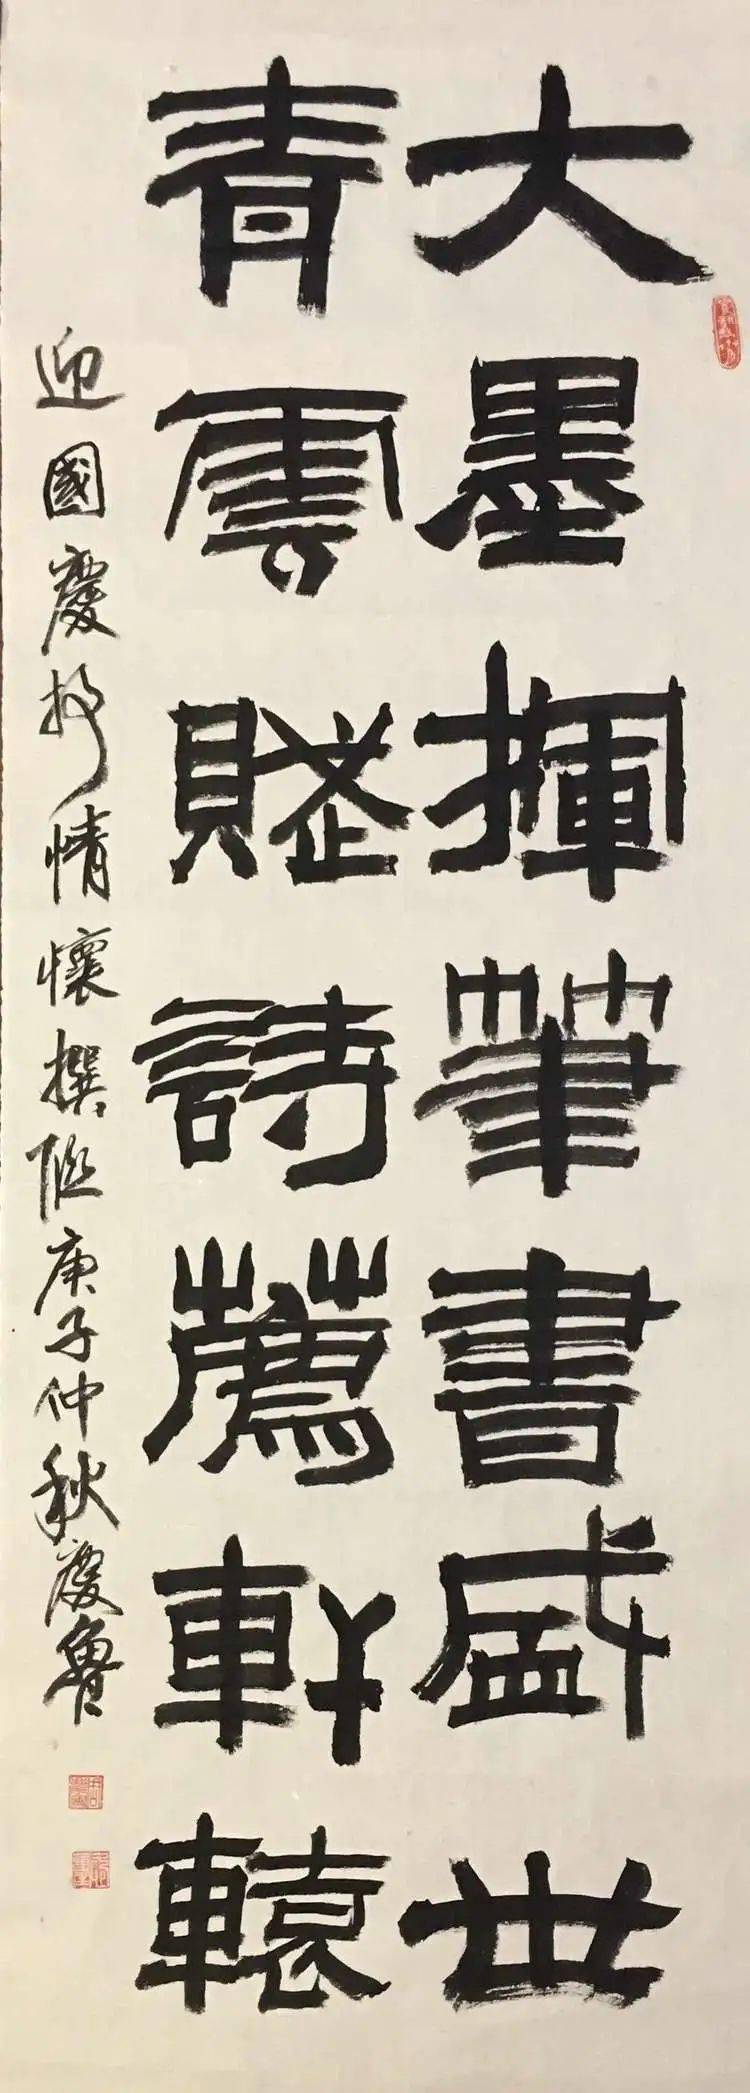 大墨揮筆書盛世
青雲賦詩薦軒轅
迎國慶抒情懷撰聯庚子仲秋慶魯